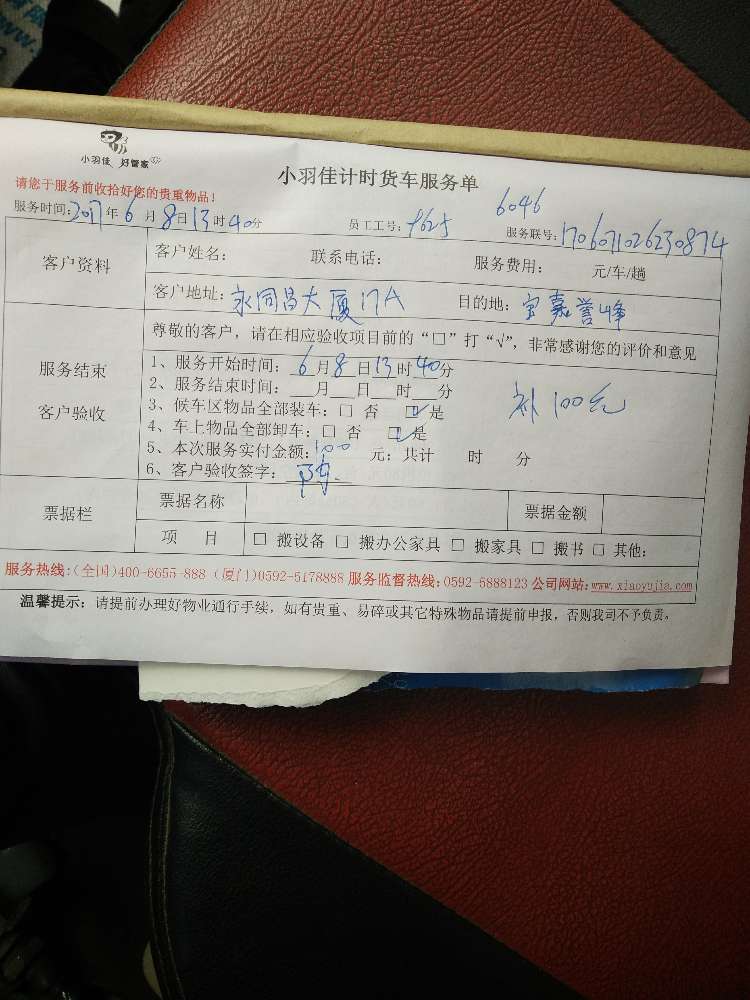 小羽佳 好管家
小羽佳计时货车服务单
请您于服务前收拾好您的贵重物品！
6046
服务时间：2017年6月8日13时40分 员工工号：9625 服务联号：1706071026230874
客户资料
客户姓名： 联系电话： 服务费用： 元/车/趟
客户地址：永同昌大厦17A 目的地：宝嘉誉峰
服务结束
客户验收
尊敬的客户，请在相应验收项目前的“□”打“√”，非常感谢您的评价和意见
1、服务开始时间：6月8日13时40分
2、服务结束时间：___月___日___时___分
3、候车区物品全部装车：□ 否 ☑是
4、车上物品全部卸车：□ 否 ☑是
5、本次服务实付金额：100 元；共计 时 分
6、客户验收签字：
补100元
票据栏
票据名称 票据金额
项 目 □ 搬设备 □ 搬办公家具 □ 搬家具 □ 搬书 □ 其他：
服务热线：（全国）400-6655-888（厦门）0592-5178888 服务监督热线：0592-6888123 公司网站：www.xiaoyujia.com
温馨提示：请提前办理好物业通行手续，如有贵重、易碎或其它特殊物品请提前申报，否则我司不予负责。